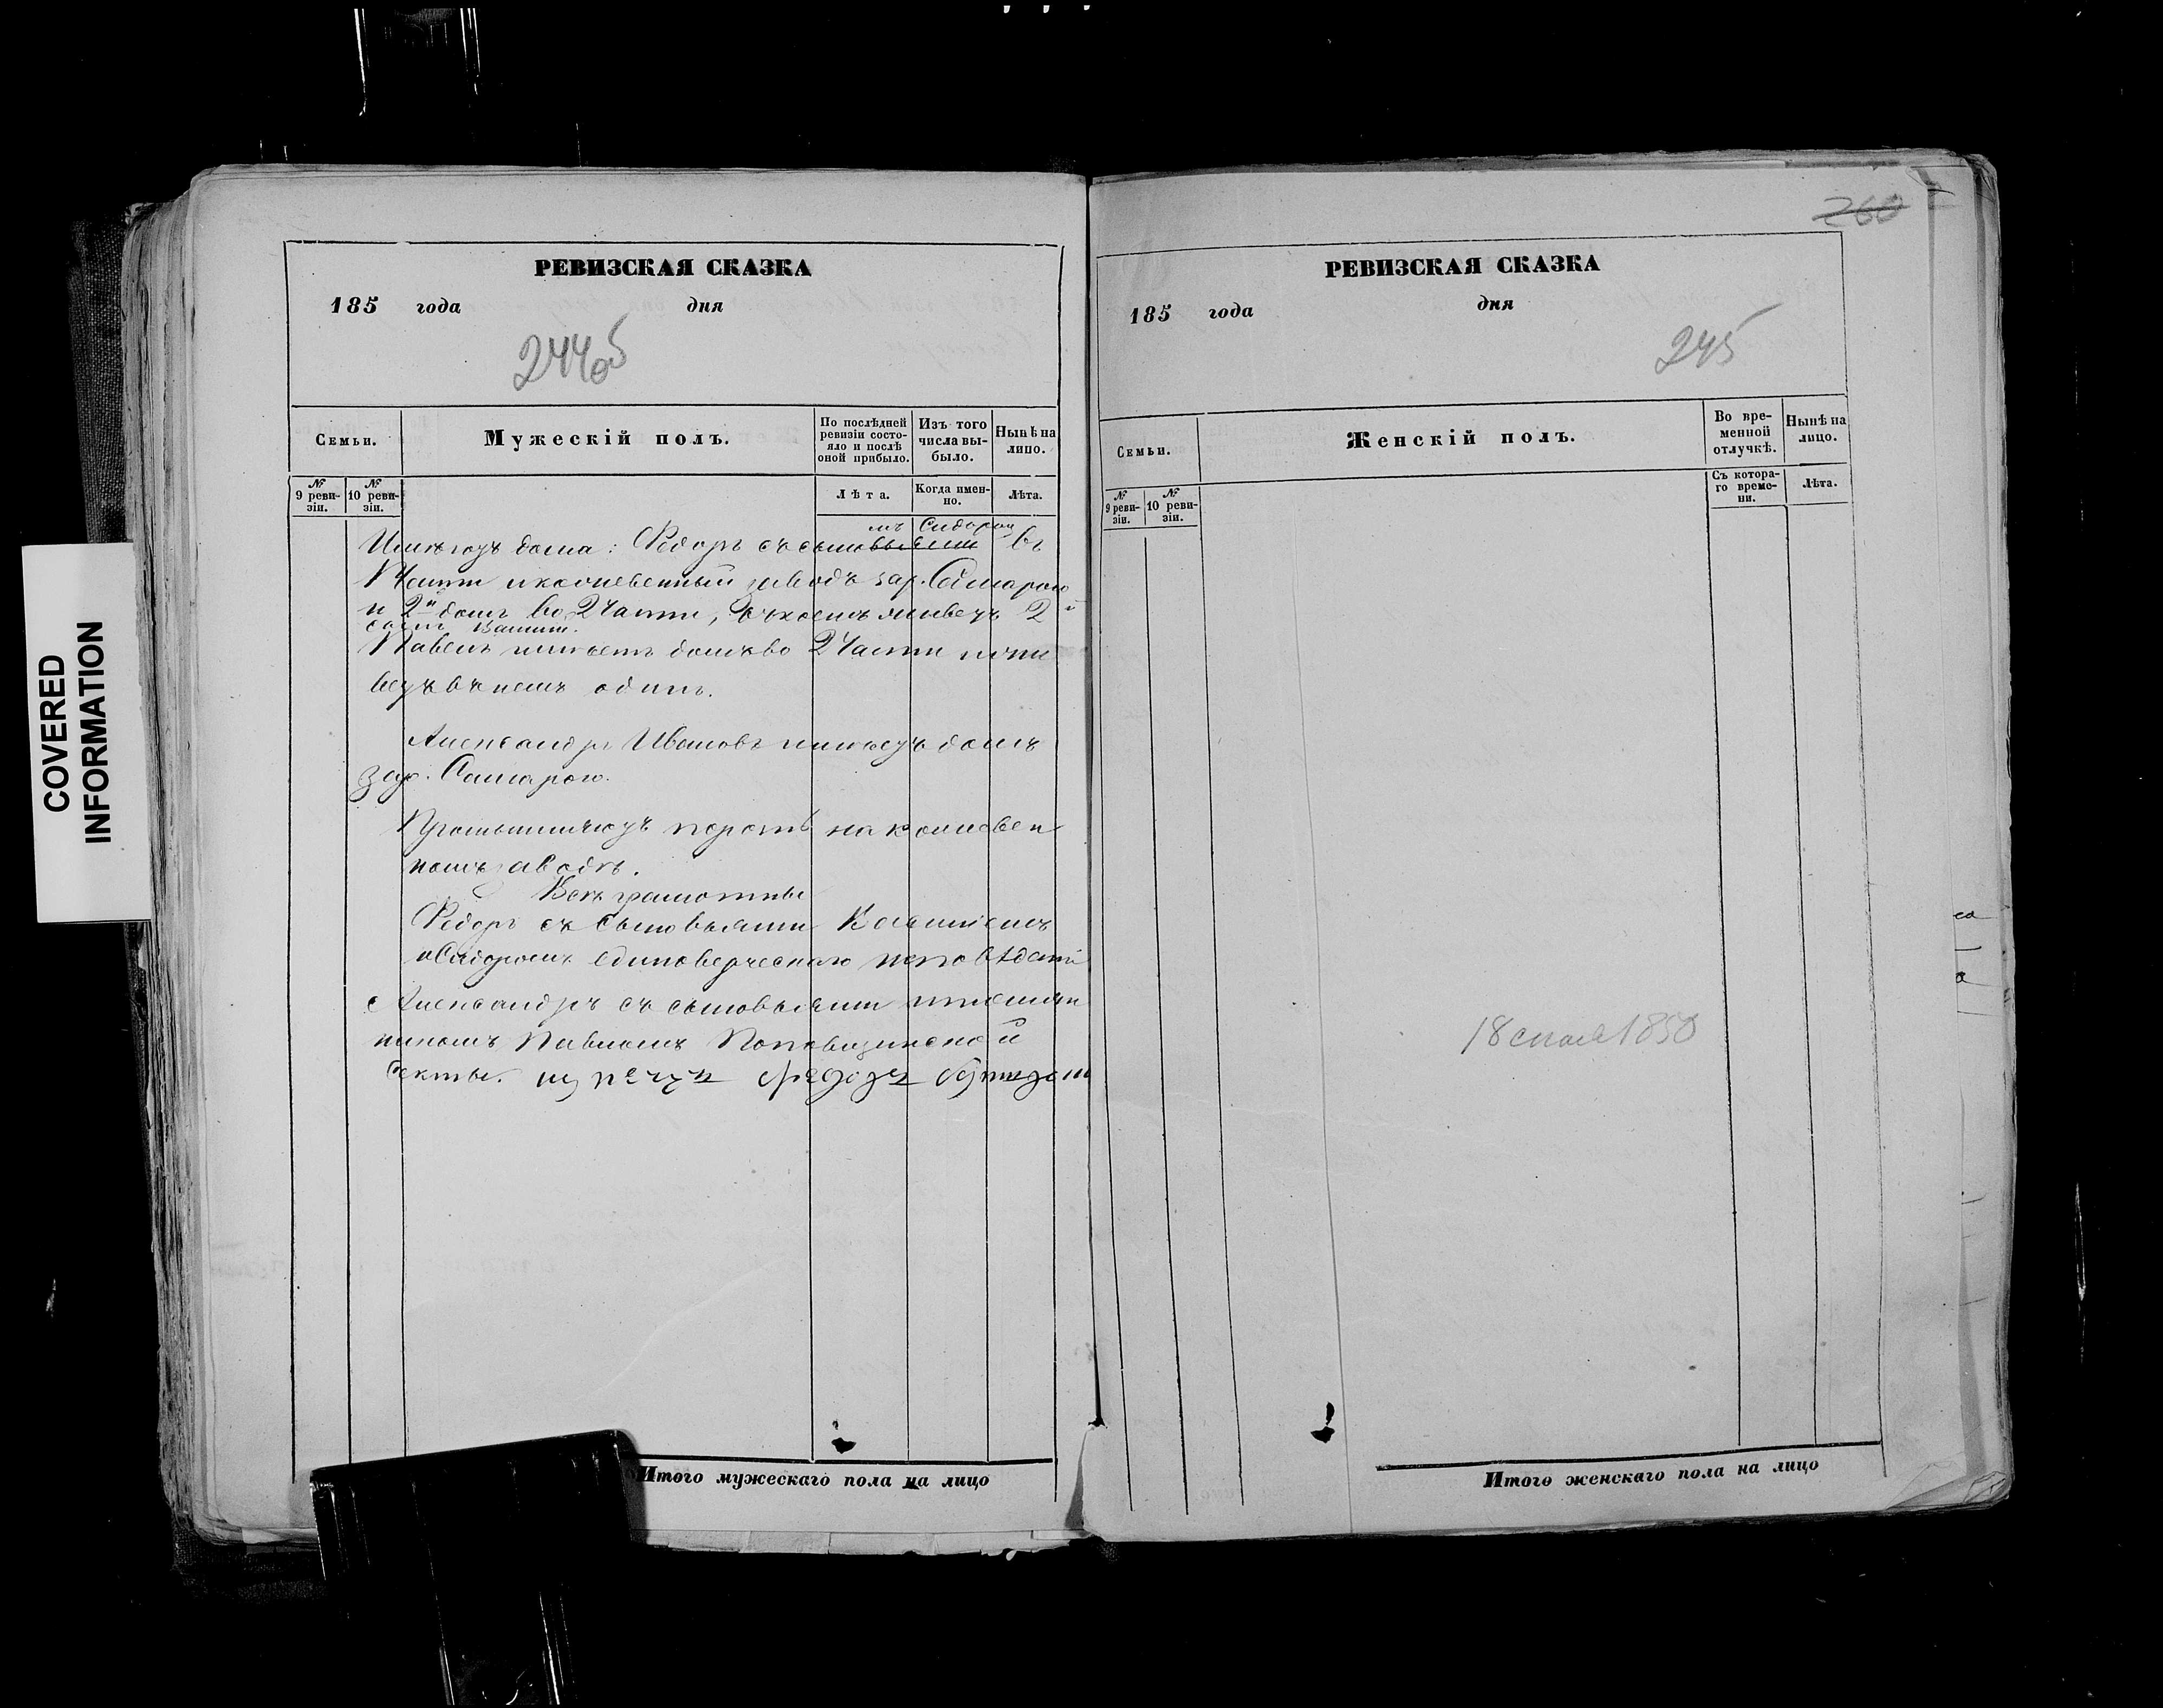 COVERED
INFORMATION
РЕВИЗСКАЯ СКАЗКА
185 года дня
244об
Семьи.
Мужескій полъ.
По послѣдней ревизіи состояло и послѣ оной прибыло.
Изъ того числа выбыло.
Нынѣ на лицо.
№ 9 ревизіи.
№ 10 ревизіи.
Лѣта.
Когда именно.
Лѣта.
мъ Сидоромъ
Имѣютъ дома: Ѳедоръ съ сыновьями въ
1 Части и кожевенный заводъ за р. Самарою
и 2й домъ во 2 Части, въ коемъ живетъ 2й
сынъ
Павелъ имѣетъ домъ во 2 Части и жи
ветъ въ немъ одинъ.
Александръ Ивановъ имѣетъ домъ
за р. Самарою.
Промышляютъ на кожевен
номъ заводѣ.
Всѣ грамотны
Ѳедоръ съ сыновьями
и Сидоромъ единоверческаго исповѣданія
Александръ съ сыновьями и племян
никомъ Павломъ Поповщинской
секты.
Итого мужескаго пола на лицо
260
РЕВИЗСКАЯ СКАЗКА
185 года дня
245
Семьи.
Женскій полъ.
Во временной отлучкѣ.
Нынѣ на лицо.
№ 9 ревизіи.
№ 10 ревизіи.
Съ котораго времени.
Лѣта.
1850
Итого женскаго пола на лицо